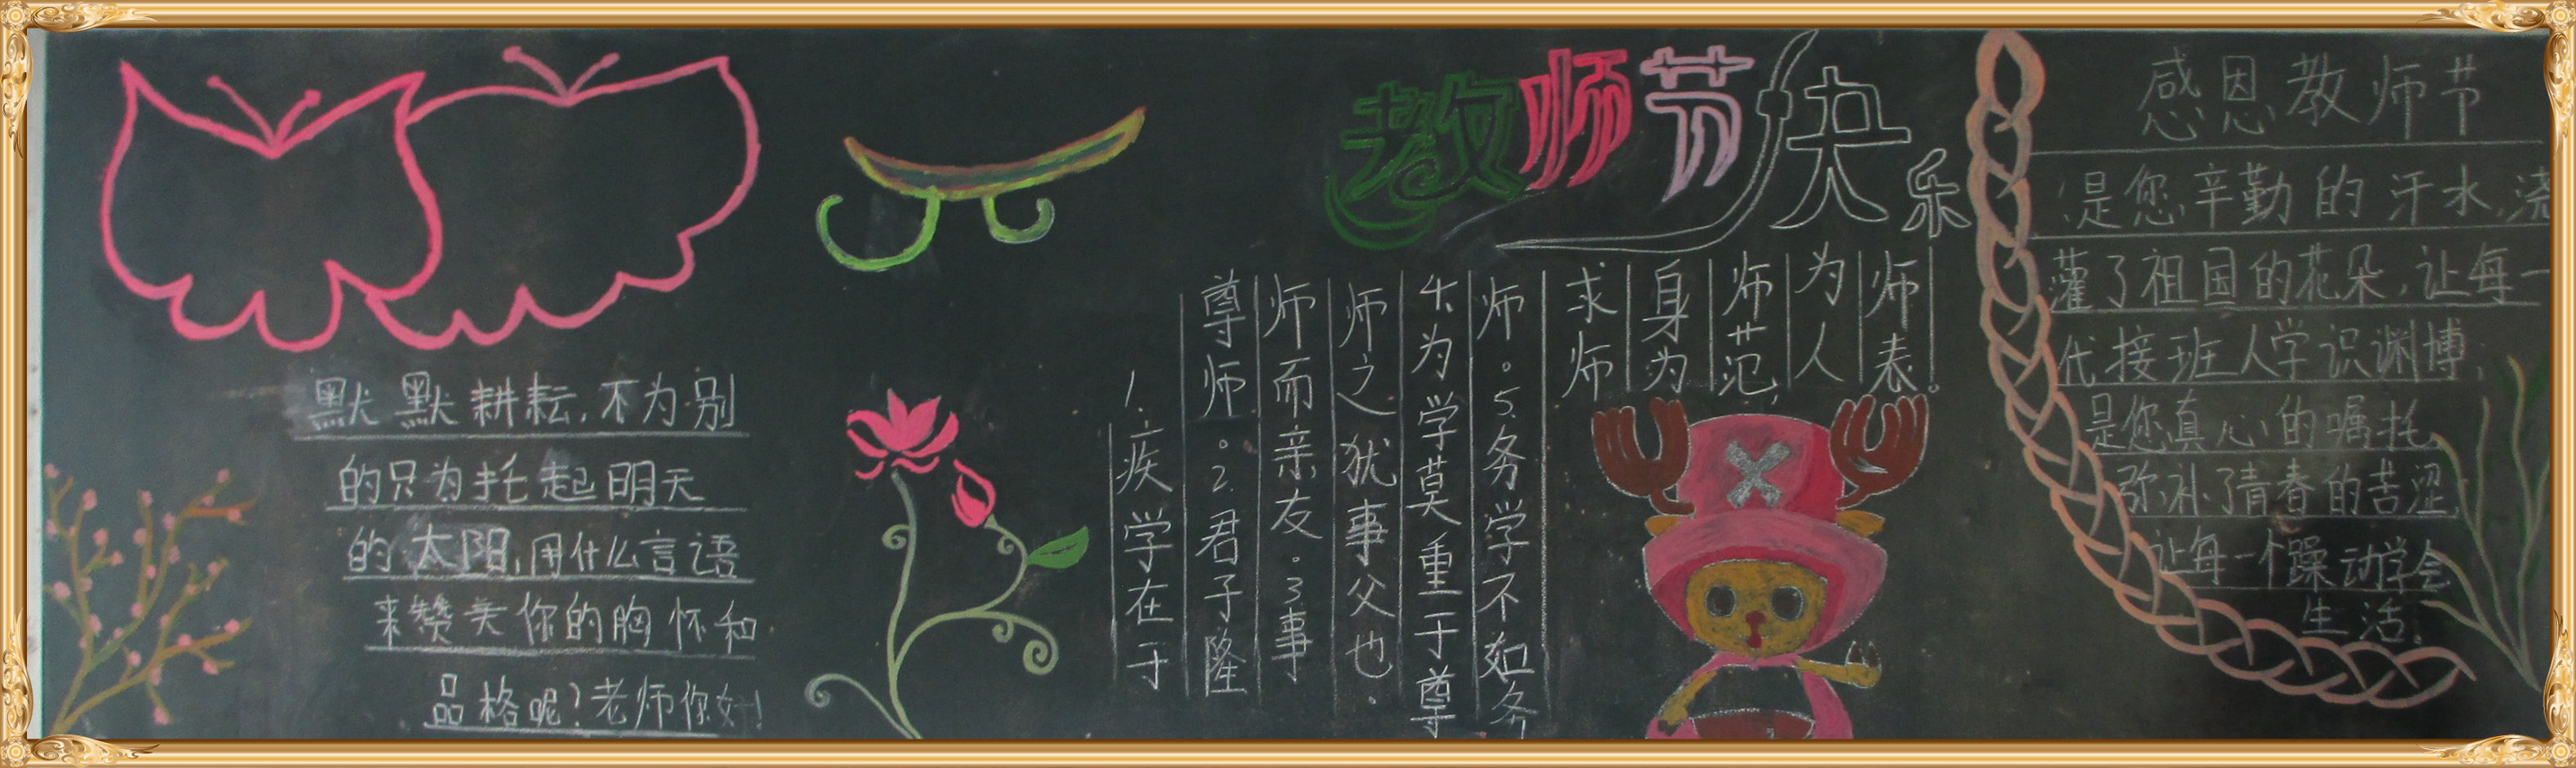 教师节快乐
默默耕耘,不为别
的只为托起明天
的太阳,用什么言语
来赞美你的胸怀和
品格呢?老师你好!
1.疾学在于
尊师。2.君子隆
师而亲友。3事
师之犹事父也.
4.为学莫重于尊
师。5.务学不如务
求师
身为
师范,
为人
师表。
感恩教师节
是您辛勤的汗水,浇
灌了祖国的花朵,让每一
代接班人学识渊博;
是您真心的嘱托
弥补了青春的苦涩,
让每一个躁动学会
生活.